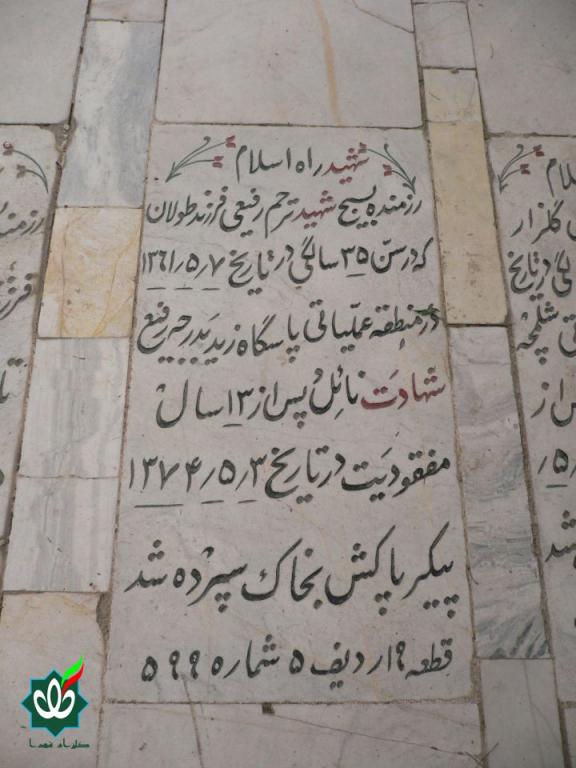 شهید راه اسلام
رزمنده بسیج شهید ترحم رفیعی فرزند طولان
که در سن ۳۵ سالگی در تاریخ ۱۳۶۱٫۵٫۷
در منطقه عملیاتی پاسگاه زید بدرجه رفیع
شهادت نائل پس از ۱۳ سال
مفقودیت در تاریخ ۱۳۷۴٫۵٫۳
پیکر پاکش بخاک سپرده شد
قطعه ۹ ردیف ۵ شماره ۵۹۹
اسلام
رزمنده
گلزار
در تاریخ
شلمچه
از
گلزار شهدا